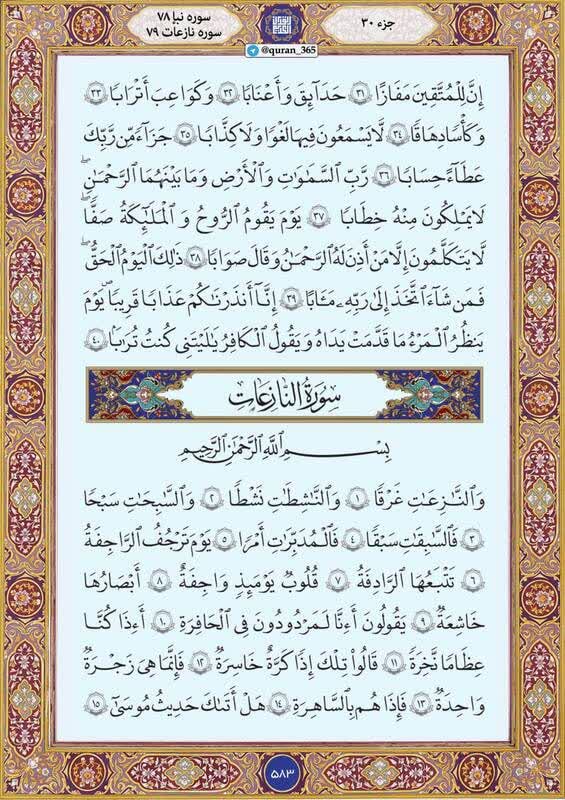 سوره نبإ ۷۸
سوره نازعات ۷۹
جزء ۳۰
@quran_365
إِنَّ لِلْمُتَّقِينَ مَفَازًا ﴿۳۱﴾ حَدَآئِقَ وَأَعْنَابًا ﴿۳۲﴾ وَكَوَاعِبَ أَتْرَابًا ﴿۳۳﴾
وَكَأْسًا دِهَاقًا ﴿۳۴﴾ لَّا يَسْمَعُونَ فِيهَا لَغْوًا وَلَا كِذَّابًا ﴿۳۵﴾ جَزَآءً مِّن رَّبِّكَ
عَطَآءً حِسَابًا ﴿۳۶﴾ رَّبِّ ٱلسَّمَٰوَٰتِ وَٱلْأَرْضِ وَمَا بَيْنَهُمَا ٱلرَّحْمَٰنِۖ
لَا يَمْلِكُونَ مِنْهُ خِطَابًا ﴿۳۷﴾ يَوْمَ يَقُومُ ٱلرُّوحُ وَٱلْمَلَٰٓئِكَةُ صَفًّاۖ
لَّا يَتَكَلَّمُونَ إِلَّا مَنْ أَذِنَ لَهُ ٱلرَّحْمَٰنُ وَقَالَ صَوَابًا ﴿۳۸﴾ ذَٰلِكَ ٱلْيَوْمُ ٱلْحَقُّۖ
فَمَن شَآءَ ٱتَّخَذَ إِلَىٰ رَبِّهِۦ مَـَٔابًا ﴿۳۹﴾ إِنَّآ أَنذَرْنَٰكُمْ عَذَابًا قَرِيبًا يَوْمَ
يَنظُرُ ٱلْمَرْءُ مَا قَدَّمَتْ يَدَاهُ وَيَقُولُ ٱلْكَافِرُ يَٰلَيْتَنِى كُنتُ تُرَٰبًۢا ﴿۴۰﴾
سُورَةُ النَّازِعَاتِ
بِسْمِ ٱللَّهِ ٱلرَّحْمَٰنِ ٱلرَّحِيمِ
وَٱلنَّٰزِعَٰتِ غَرْقًا ﴿۱﴾ وَٱلنَّٰشِطَٰتِ نَشْطًا ﴿۲﴾ وَٱلسَّٰبِحَٰتِ سَبْحًا
﴿۳﴾ فَٱلسَّٰبِقَٰتِ سَبْقًا ﴿۴﴾ فَٱلْمُدَبِّرَٰتِ أَمْرًا ﴿۵﴾ يَوْمَ تَرْجُفُ ٱلرَّاجِفَةُ
﴿۶﴾ تَتْبَعُهَا ٱلرَّادِفَةُ ﴿۷﴾ قُلُوبٌ يَوْمَئِذٍ وَاجِفَةٌ ﴿۸﴾ أَبْصَٰرُهَا
خَٰشِعَةٌ ﴿۹﴾ يَقُولُونَ أَءِنَّا لَمَرْدُودُونَ فِى ٱلْحَافِرَةِ ﴿۱۰﴾ أَءِذَا كُنَّا
عِظَٰمًا نَّخِرَةً ﴿۱۱﴾ قَالُوا۟ تِلْكَ إِذًا كَرَّةٌ خَاسِرَةٌ ﴿۱۲﴾ فَإِنَّمَا هِىَ زَجْرَةٌ
وَٰحِدَةٌ ﴿۱۳﴾ فَإِذَا هُم بِٱلسَّاهِرَةِ ﴿۱۴﴾ هَلْ أَتَىٰكَ حَدِيثُ مُوسَىٰٓ ﴿۱۵﴾
۵۸۳